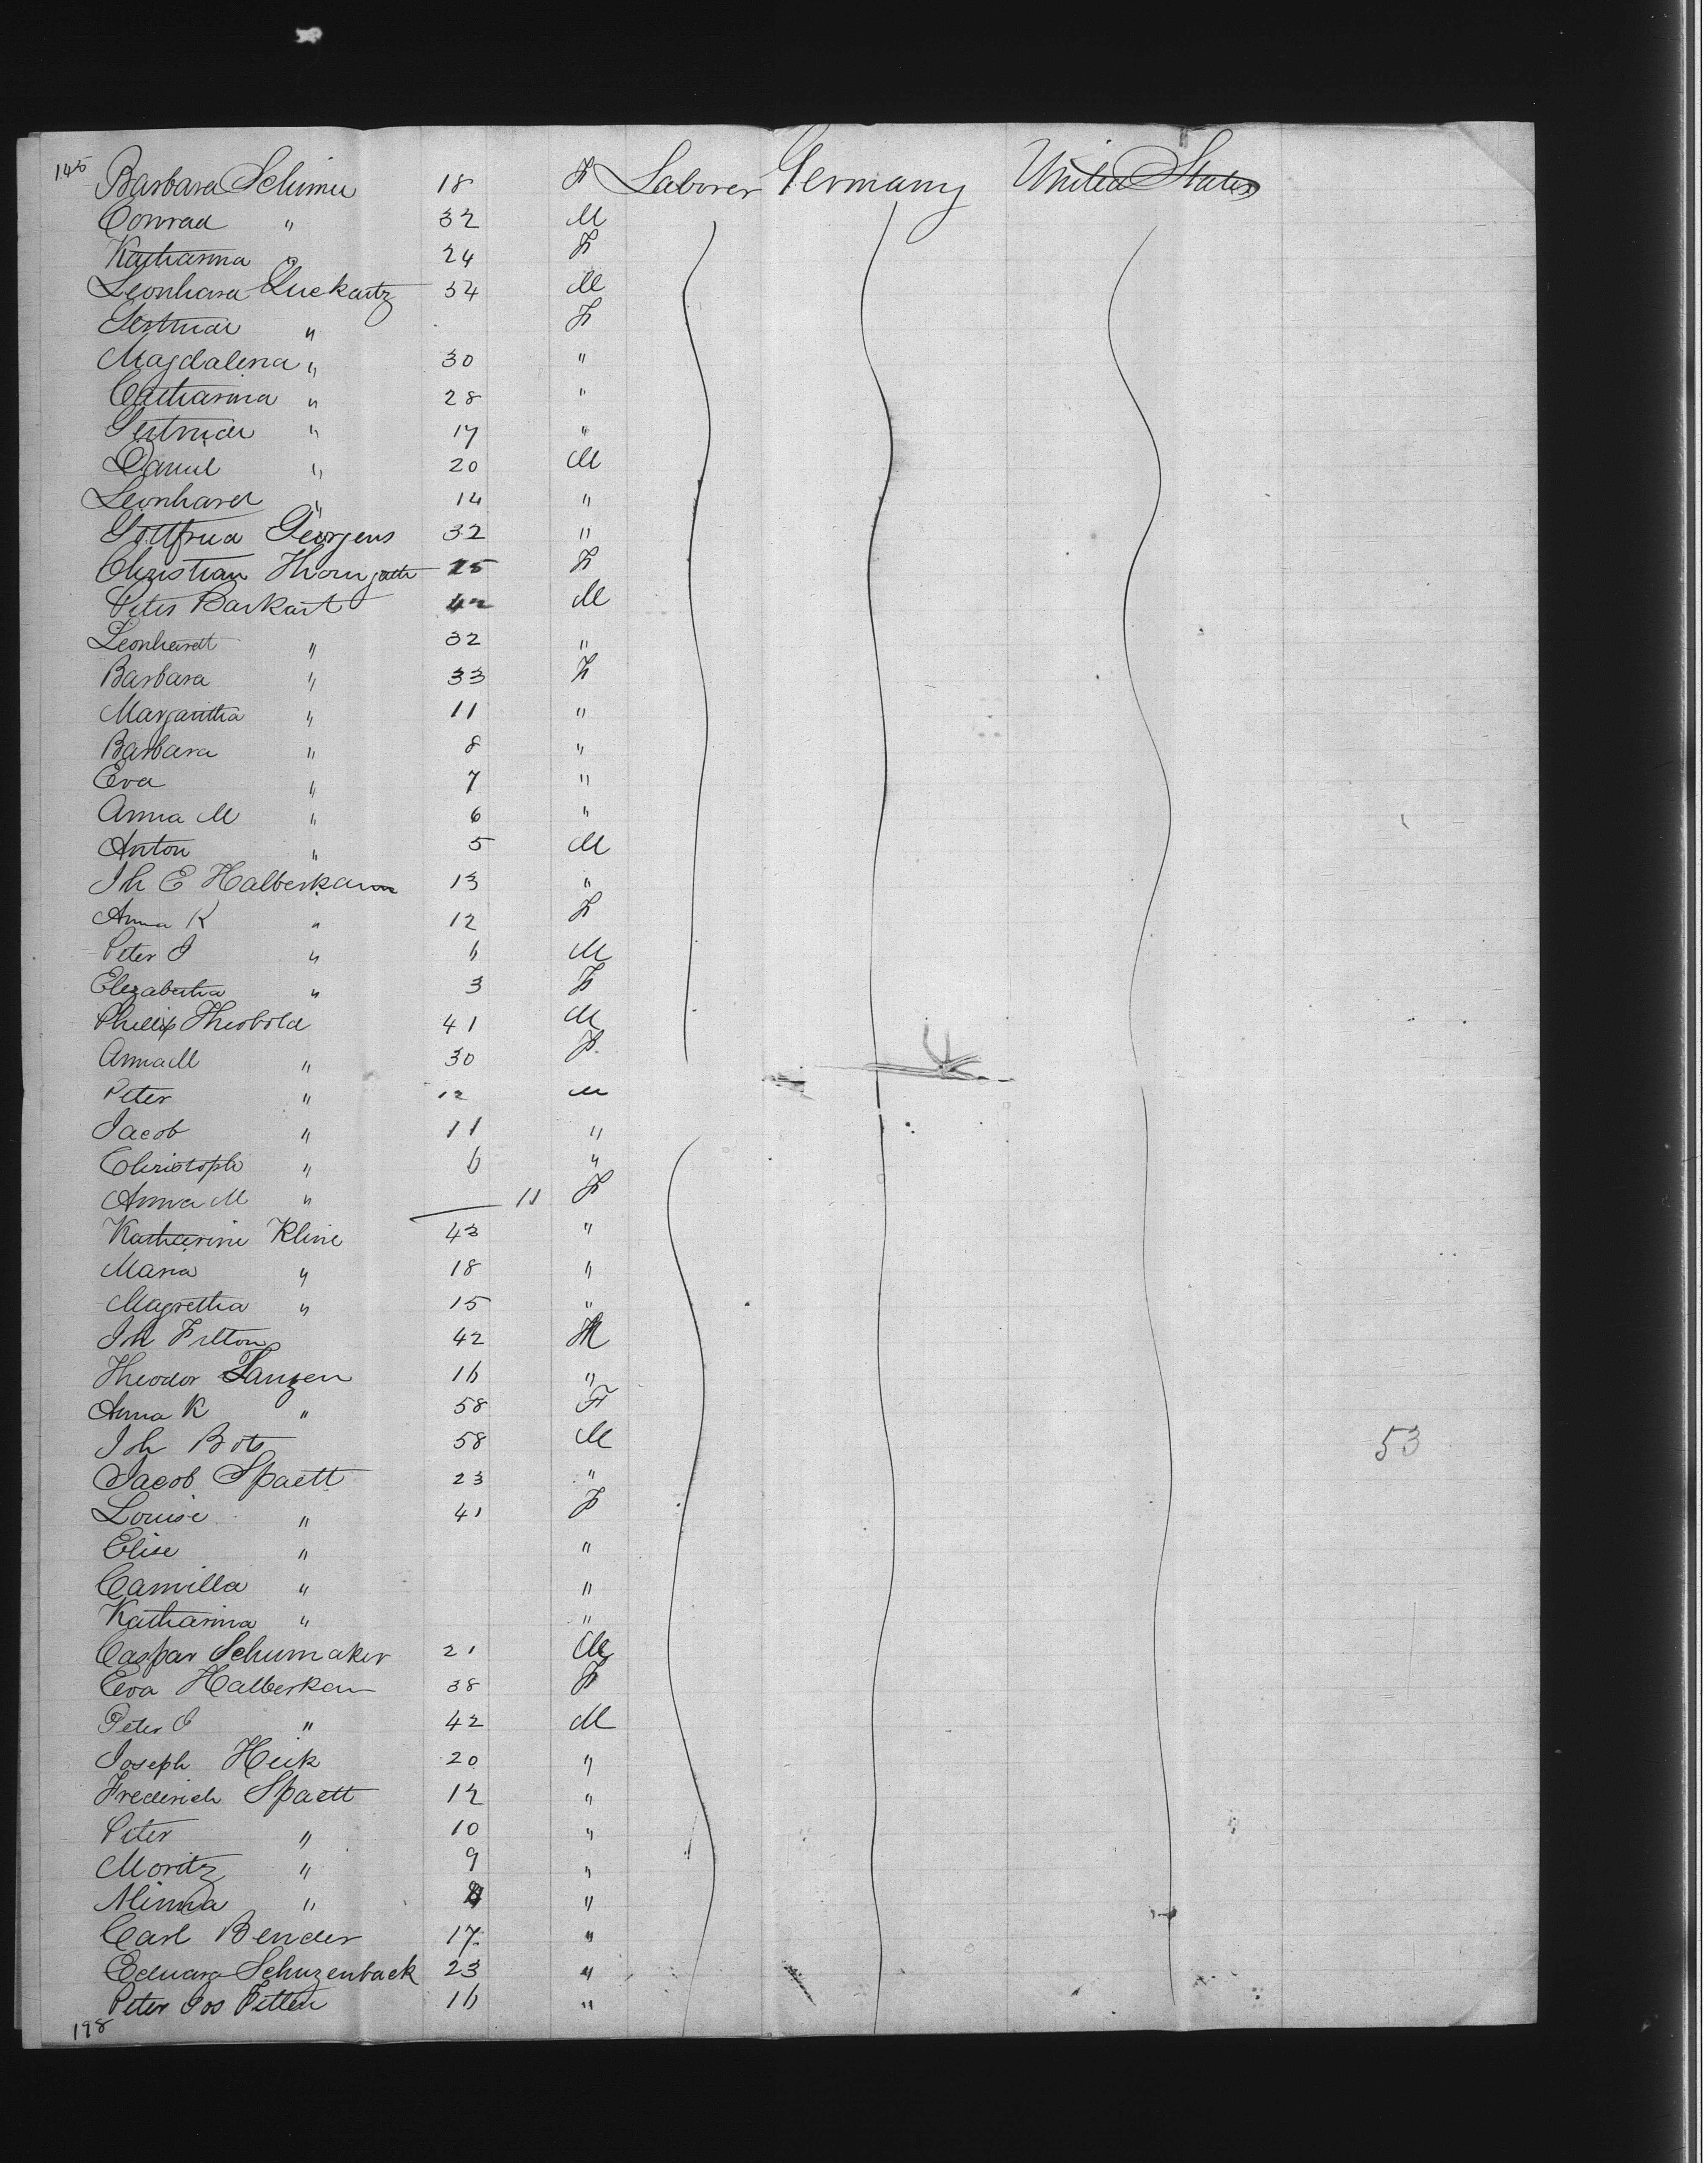 145 Barbara Schimer 18 F Laborer Germany United States
Conrad " 32 M
Katharina " 24 F
Leonhard Quckartz 34 M
Gertrude " F
Magdalena " 30 "
Catharina " 28 "
Gertrude " 17 "
Daniel " 20 M
Leonhard " 14 "
Gottfried Georgens 32 "
Christian 25 F
Peter Barkart 42 M
Leonhardt " 32 "
Barbara " 33 F
Margaretha " 11 "
Barbara " 8 "
Eva " 7 "
Anna M " 6 "
Anton " 5 M
Joh E Halberkann 13 "
Anna K " 12 F
Peter J " 6 M
Elizabetha " 3 F
Phillip Theobold 41 M
Anna M " 30 F
Peter " 12 M
Jacob " 11 "
Christoph " 6 "
Anna M " 11 F
Katharine Kline 43 "
Maria " 18 "
Magretha " 15 "
Joh Filton 42 M
Theodor Lanzen 16 "
Anna K " 58 F
Joh Bots 58 M
53
Jacob Spaett 23 "
Louise " 41 F
Elise " "
Camilla " "
Katharina " "
Caspar Schumaker 21 M
Eva Halberkan 38 F
Peter J " 42 M
Joseph Heik 20 "
Frederich Spaett 12 "
Peter " 10 "
Moritz " 9 "
Minna " "
Carl Bender 17 "
Eduard Schuzenback 23 "
Peter Jos Pitten 16 "
198